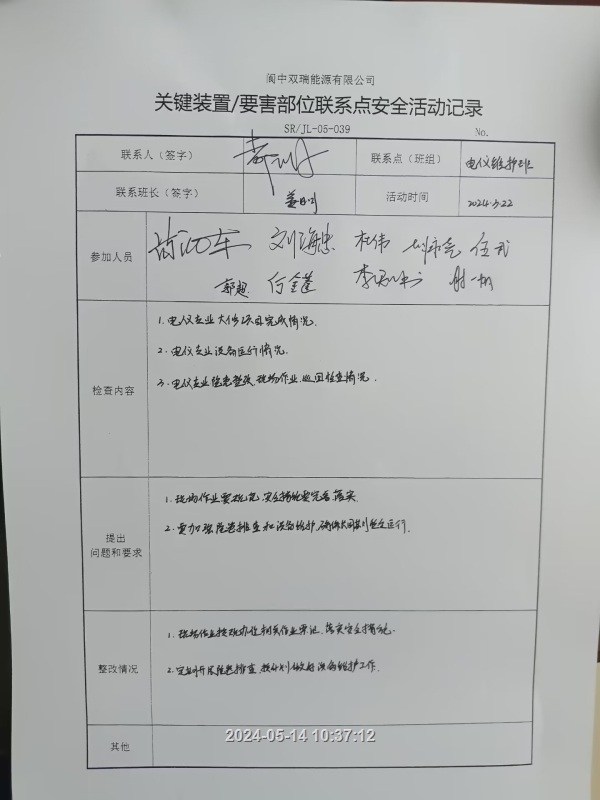 阆中双瑞能源有限公司
关键装置/要害部位联系点安全活动记录
SR/JL-05-039 No.
联系人(签字) 联系点(班组) 电仪维护班
联系班长(签字) 活动时间 2024.3.22
参加人员 刘海忠 杜伟 任武
郭超
检查内容
1.电仪专业大修项目完成情况.
2.电仪专业设备运行情况.
3.电仪专业隐患整改,现场作业,巡回检查情况.
提出
问题和要求
1.现场作业要规范,安全措施要完善落实.
2.要加强隐患排查和设备维护,确保长周期安全运行.
整改情况
1.现场作业按规办理相关作业票证,落实安全措施.
2.定期开展隐患排查,按计划做好设备维护工作.
其他
2024-05-14 10:37:12